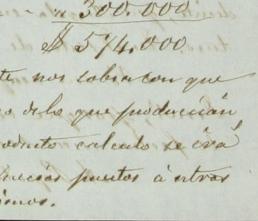 " 300.000
$ 574.000
te nos sobra con que
o de lo que producián
oducto calculo se irá
necios puestos á otros
inos.